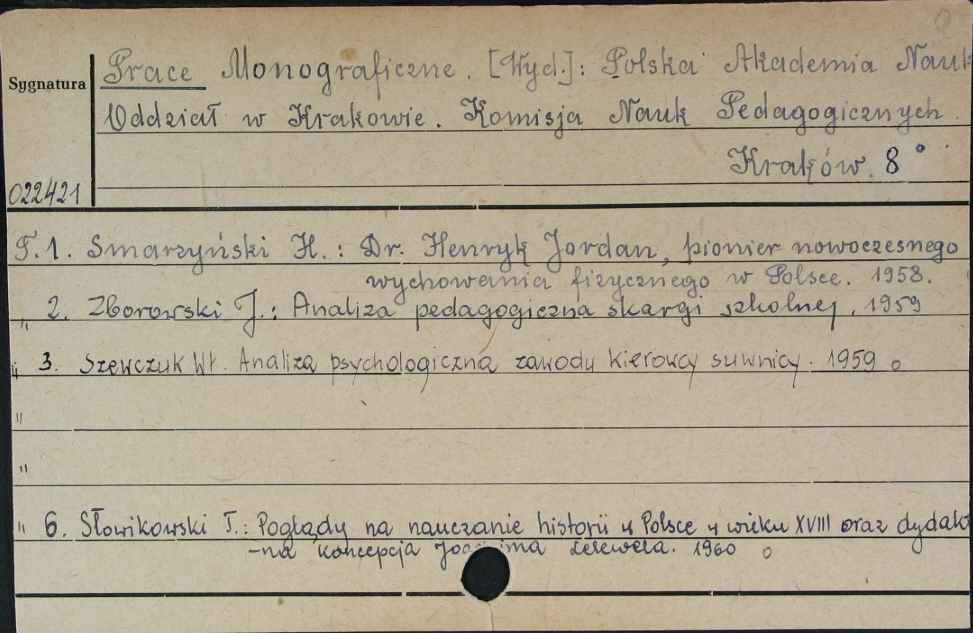 Sygnatura Prace Monograficzne. [Wyd.]: Polska Akademia Nauk
Oddział w Krakowie. Komisja Nauk Pedagogicznych.
Kraków. 8°
022421
T. 1. Smarzyński H.: Dr. Henryk Jordan, pionier nowoczesnego
wychowania fizycznego w Polsce. 1958.
" 2. Zborowski J.: Analiza pedagogiczna skargi szkolnej. 1959
" 3. Szewczuk Wł. Analiza psychologiczna zawodu kierowcy suwnicy. 1959 o
"
"
" 6. Słowikowski T.: Poglądy na nauczanie historii w Polsce w wieku XVIII oraz dydak
-na koncepcja Lelewela. 1960 o